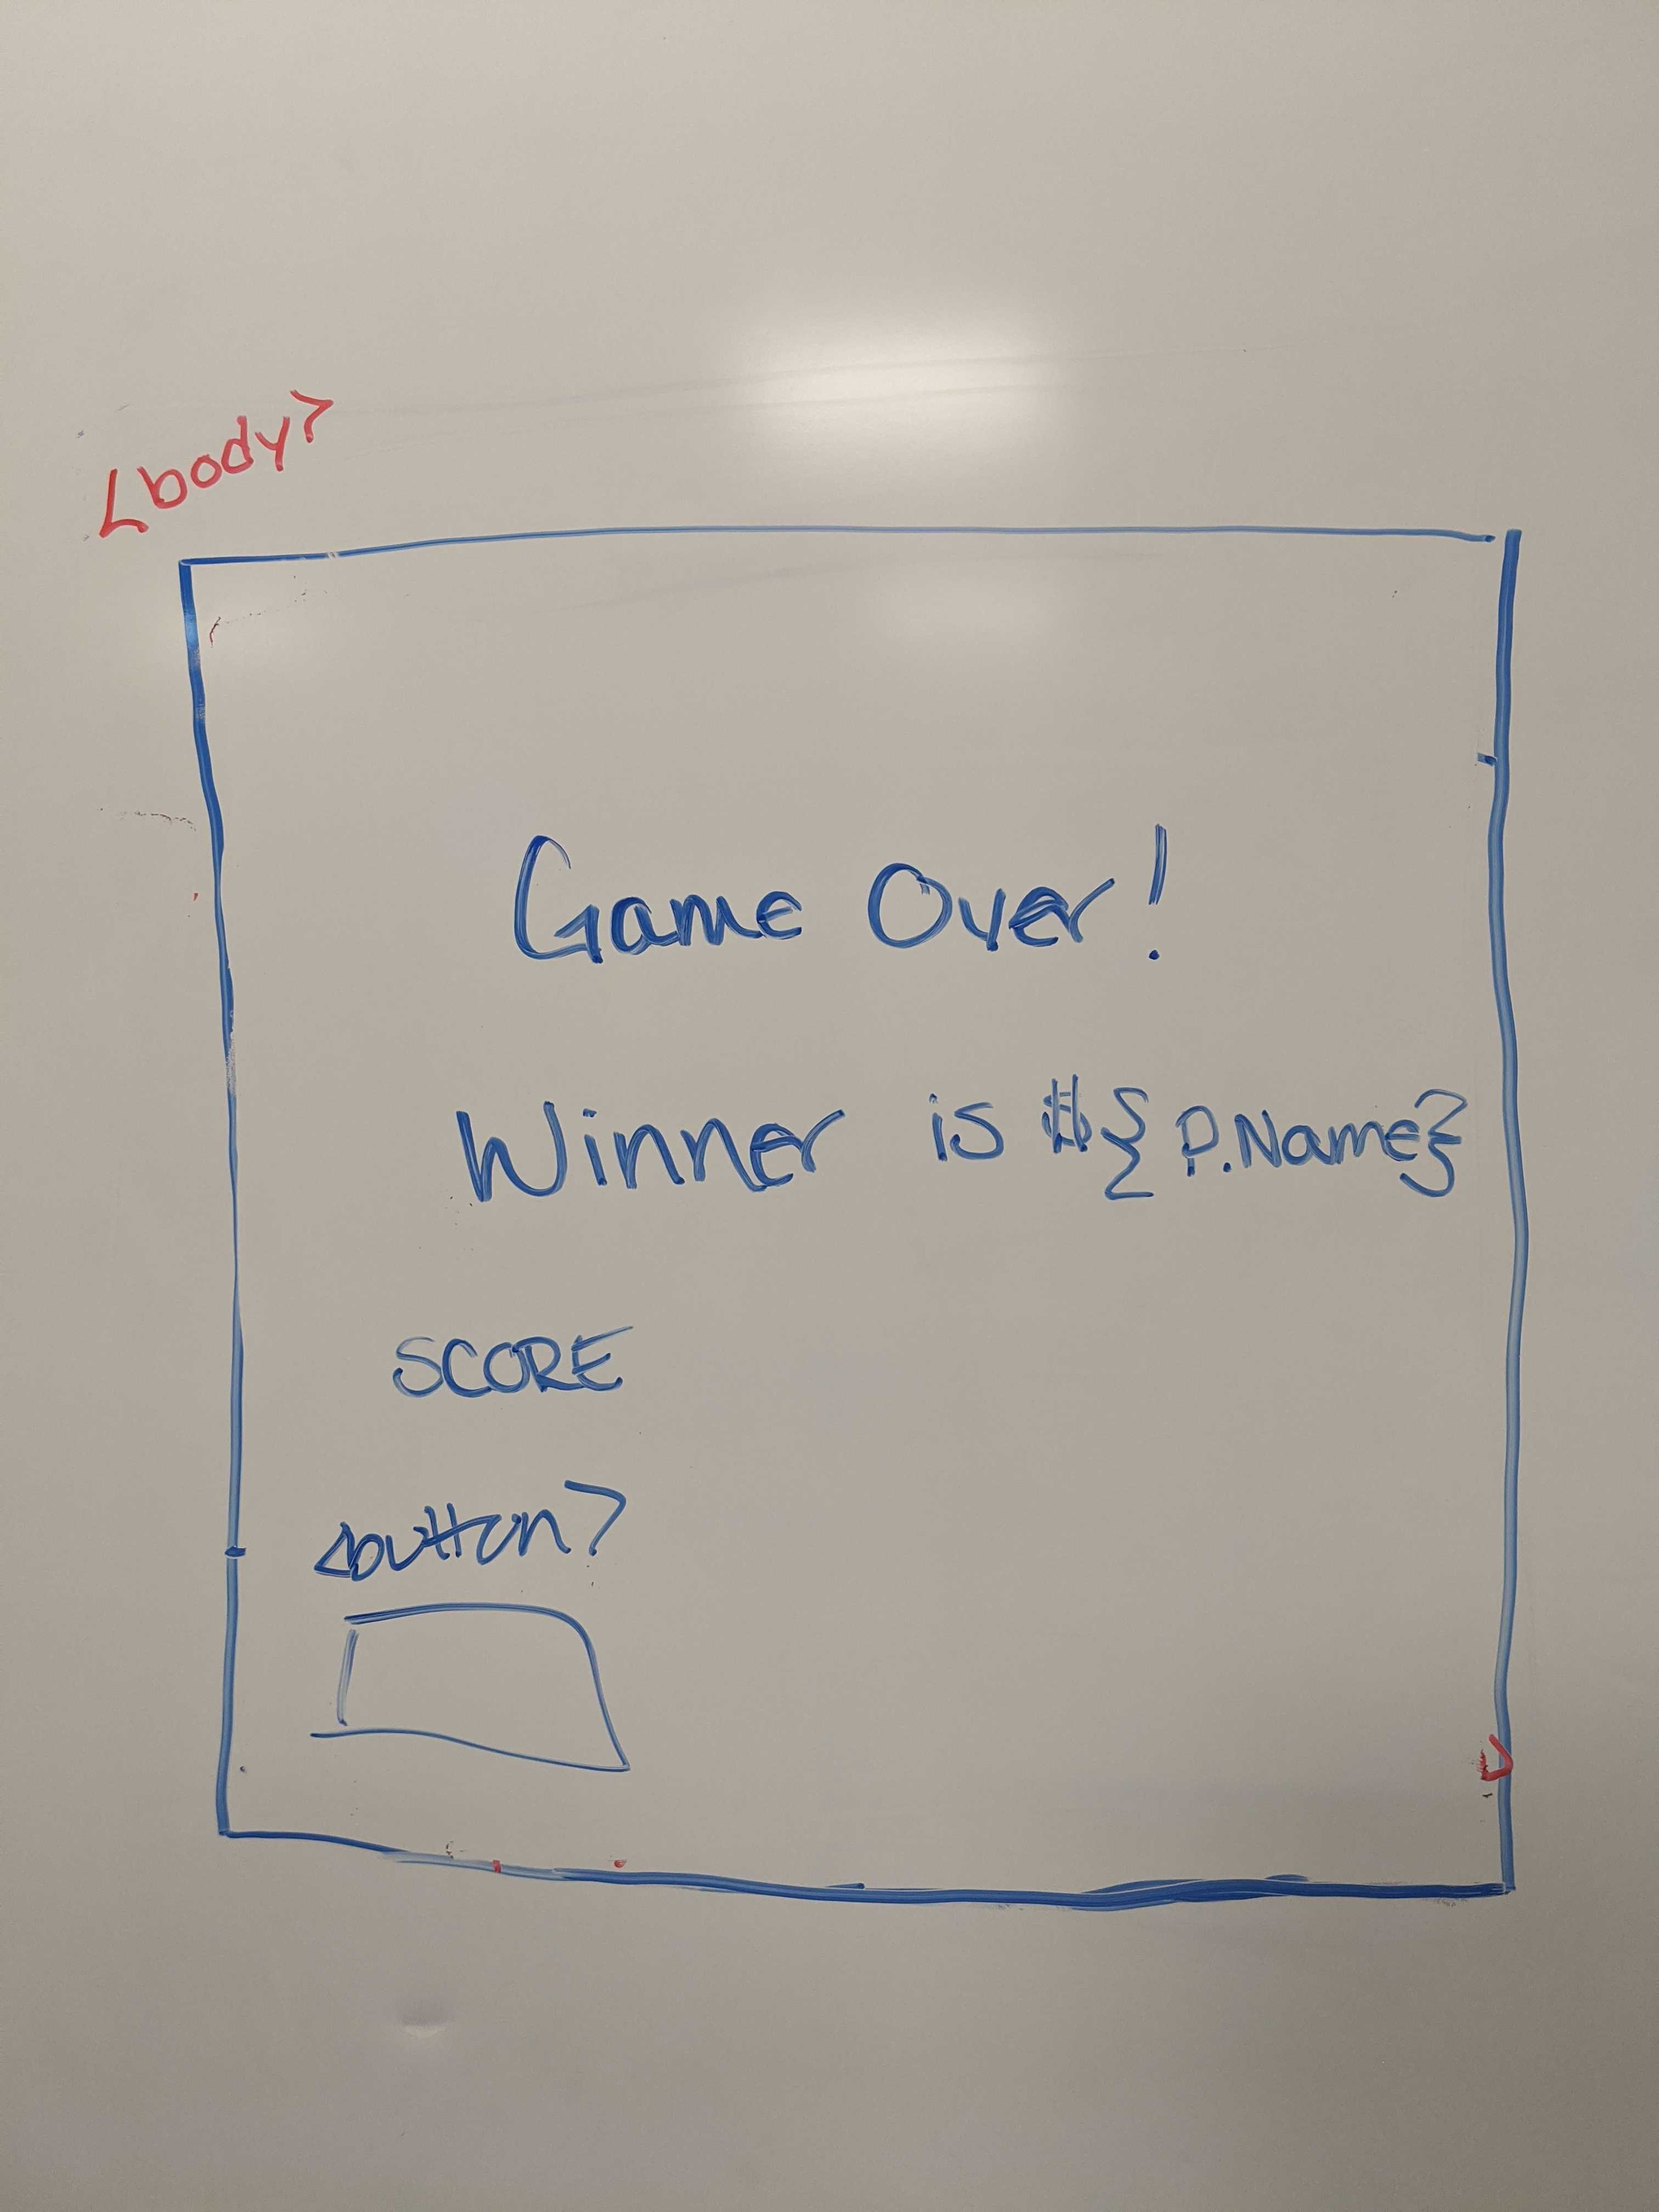 <body>
Game Over!
Winner is ${P.Name}
SCORE
<button>